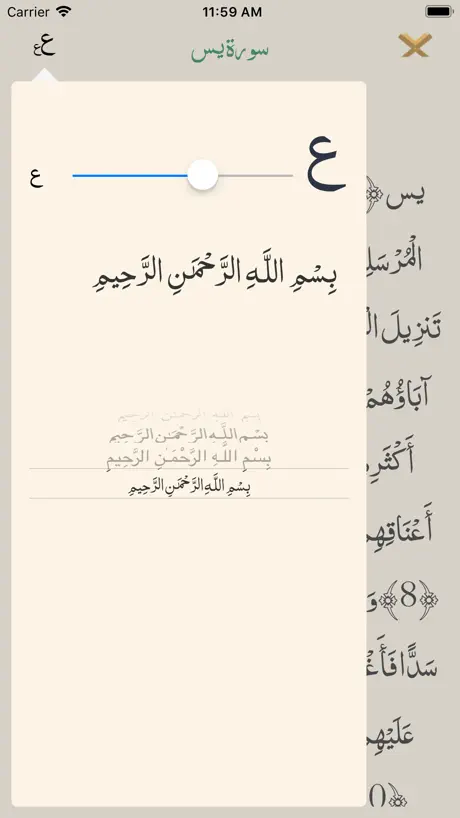 Carrier 11:59 AM
عع
سورة يس
ع
ع
بِسْمِ اللَّهِ الرَّحْمَٰنِ الرَّحِيمِ
بسم الله الرحمن الرحيم
بِسْمِ اللَّهِ الرَّحْمَٰنِ الرَّحِيمِ
بِسْمِ اللَّهِ الرَّحْمَٰنِ الرَّحِيمِ
بِسْمِ اللَّهِ الرَّحْمَٰنِ الرَّحِيمِ
يس
تَنزِيلَ
آبَاؤُهُمْ
﴿8﴾ وَ
سَدًّا